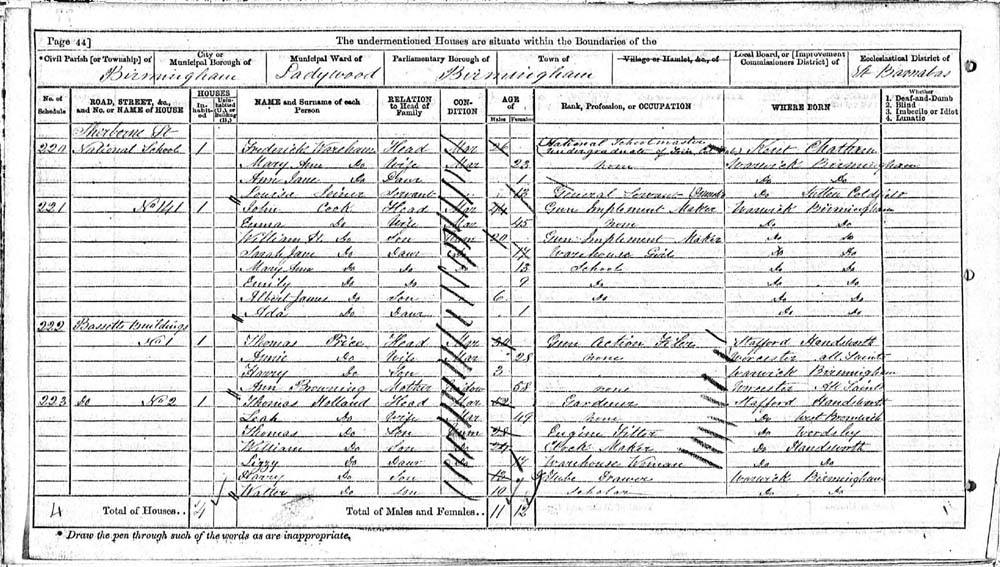 Page 44] The undermentioned Houses are situate within the Boundaries of the
*Civil Parish [or Township] of City or Municipal Borough of Municipal Ward of Parliamentary Borough of Town of Village or Hamlet, &c., of Local Board, or [Improvement Commissioners District] of Ecclesiastical District of
Birmingham Ladywood Birmingham St Barnabas
No. of Schedule ROAD, STREET, &c., and No. or NAME of HOUSE HOUSES Inhabited Uninhabited (U.), or Building (B.) NAME and Surname of each Person RELATION to Head of Family CONDITION AGE of Males Females Rank, Profession, or OCCUPATION WHERE BORN Whether 1. Deaf-and-Dumb 2. Blind 3. Imbecile or Idiot 4. Lunatic
Sherborne St
220 National School 1 Frederick Head Mar 26 National Schoolmaster Undergraduate of Kent Chatham
Mary Ann Do Wife Mar 23 none Warwick Birmingham
Ann Jane Do Daur 1 Do Do
Louisa Servant 13 General Servant Do Sutton Coldfield
221 No 141 1 John Cook Head Mar 44 Gun Implement Maker Warwick Birmingham
Emma Do Wife Mar 45 none Do Do
William H. Do Son 20 Gun Implement Maker Do Do
Sarah Jane Do Daur 17 Warehouse Girl Do Do
Mary Ann Do Do 13 School Do Do
Emily Do Do 9 Do Do Do
Albert James Do Son 6 Do Do Do
Ada Do Daur 1 Do Do
222 Bassetts Buildings
No 1 1 Thomas Price Head Mar Gun Action Filer Stafford Handsworth
Annie Do Wife Mar 28 none Worcester All Saints
Harry Do Son 3 Warwick Birmingham
Ann Browning Mother Widow 58 none Worcester All Saints
223 Do No 2 1 Thomas Holland Head Mar 52 Gardener Stafford Handsworth
Leah Do Wife Mar 49 none Do West Bromwich
Thomas Do Son 28 Engine Fitter Do Wordsley
William Do Son 24 Clock Maker Do Handsworth
Lizzy Do Daur 17 Warehouse Woman Do Do
Harry Do Son 12 Tube Drawer Warwick Birmingham
Walter Do Son 10 Scholar Do Do
4 Total of Houses.. 4 Total of Males and Females.. 11 12
* Draw the pen through such of the words as are inappropriate.